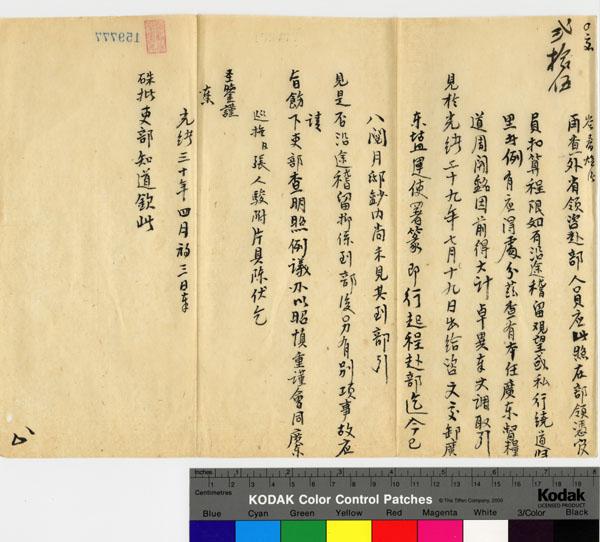 京
弍拾伍
再查外省領咨赴部人員應比照在部領憑官
員扣算程限如有沿途稽留觀望或私行繞道歸
里者例有應得處分茲查有本任廣東督糧
道周開銘因前得大計卓異奉文調取引
見於光緒二十九年七月十九日出給咨文交卸廣
東鹽運使署篆即行起程赴部迄今已
八閱月邸鈔內尚未見其到部引
見是否沿途稽留抑係到部後另有別項事故應
請
旨飭下吏部查明照例議办以昭慎重謹會同廣東
巡撫臣張人駿附片具陳伏乞
聖鑒謹
奏
光緒三十年四月初三日奉
硃批吏部知道欽此
159777
inches
Centimetres
KODAK Color Control Patches
© The Tiffen Company, 2000
Kodak
LICENSED PRODUCT
Blue Cyan Green Yellow Red Magenta White 3/Color Black